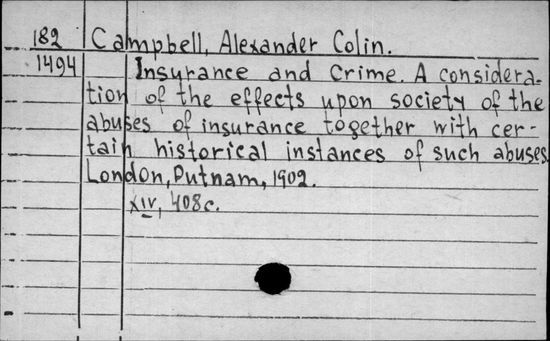 182 Campbell, Alexander Colin.
1494 Insurance and Crime. A considera-
tion of the effects upon society of the
abuses of insurance together with cer-
tain historical instances of such abuses.
London, Putnam, 1902.
XIV, 408c.